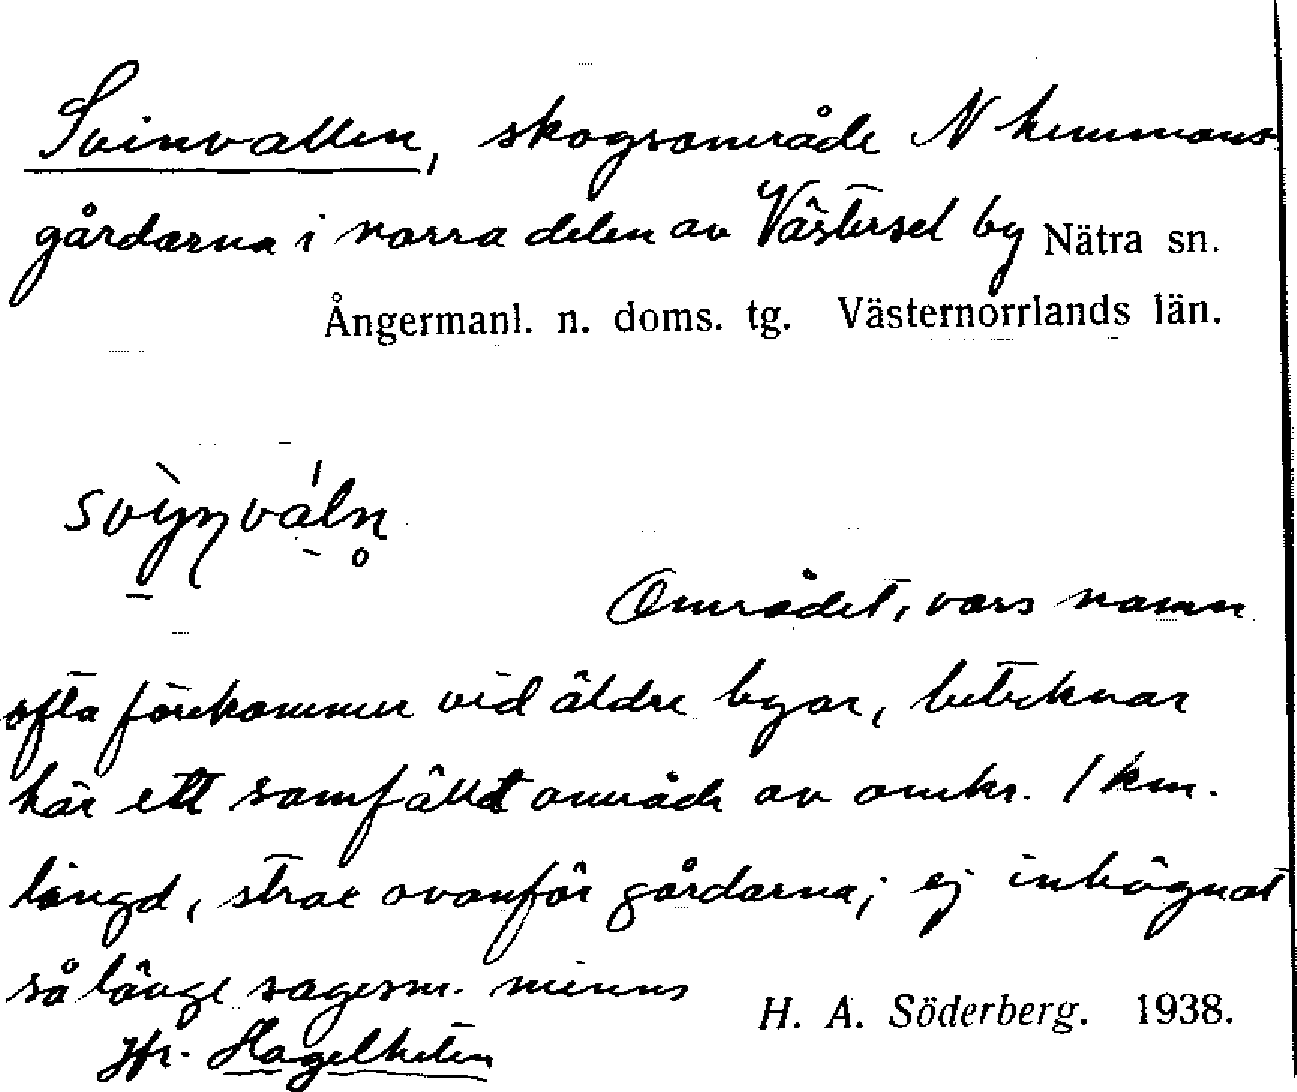 Svinvallen, skogsområde N hemmans-
gårdarna i norra delen av Västersel by Nätra sn.
Ångermanl. n. doms. tg. Västernorrlands län.
Området, vars namn
ofta förekommer vid äldre byar, betecknar
här ett samfällt område av omkr. 1 km.
längd, strax ovanför gårdarna; ej inhägnat
så länge sagesm. minns
H. A. Söderberg. 1938.
Jfr. Hagelheten